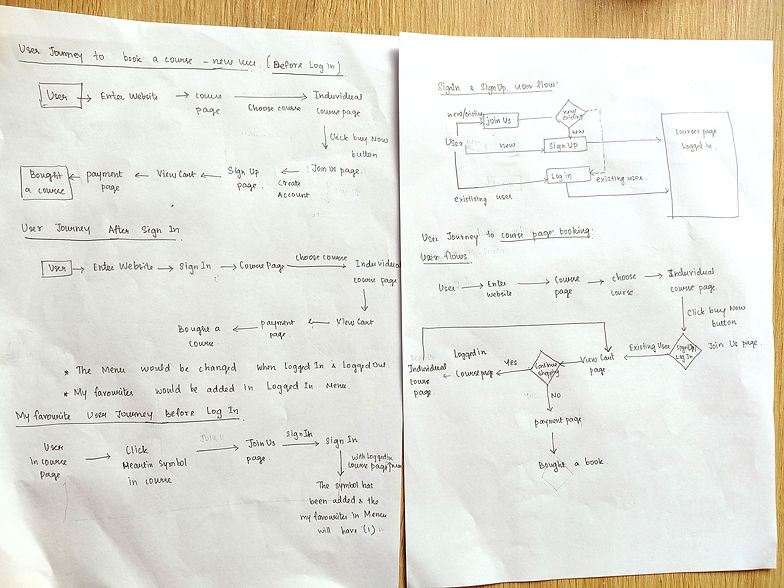 User Journey to book a course - new user. (Before Log In)
User
Enter Website
course
page
Choose course
Individual
Course page
Click buy Now
button
Join Us page.
Create
Account
Sign Up
page.
View Cart
payment
page
Bought
a course
User Journey After Sign In
User
Enter Website
Sign In
Course Page
choose course
Individual
course page
View Cart
payment
page
Bought a
course
* The Menu would be changed when Logged In & Logged Out.
* My favourites would be added in Logged In Menu.
My favourite User Journey Before Log In
User
in course
page
Click
in course
Join Us
page.
Sign In
Sign In
with Logged in
course page
The symbol has
been added & the
my favourites in Menu
will have (1)
Sign In & Sign Up user flow:
new/existing
Join Us
new/
existing
new
User
new
Sign Up
Log in
existing user
existing user
Courses page
Logged in.
User Journey to course page booking.
User flows
User
Enter
website
Course
page
choose
course
Individual
course page.
Click buy Now
button
Sign Up/
Log In
Join Us page.
Existing User
View Cart
page
Continue
shopping
Yes
Logged in
Course page
Individual
course
page
NO
payment page
Bought a book.